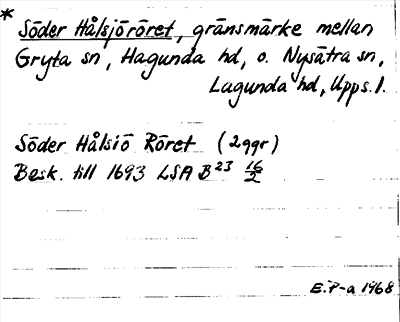 * Söder Hålsjöröret, gränsmärke mellan
Gryta sn, Hagunda hd, o. Nysätra sn,
Lagunda hd, Upps. l.
Söder Hålsiö Röret (2 ggr)
Besk. till 1693 LSA B23 16/2
E. P-a 1968